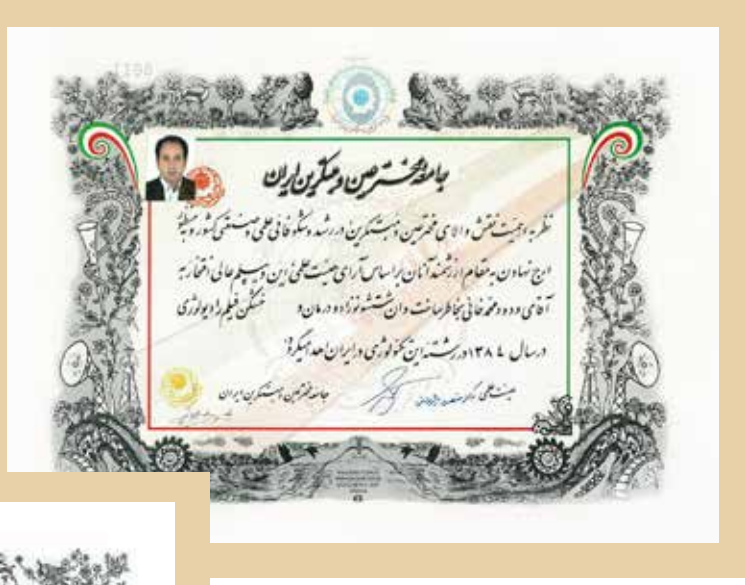 1198
جامعه مخترعین و مبتکرین ایران
نظر به اهمیت نقش والای مخترعین و مبتکرین در رشد و شکوفائی علمی و صنعتی کشور و
ارج نهادن به مقام ارزشمند آنان براساس آرای هیئت علمی این دیپلم عالی افتخار به
آقای ودود محمدخانی بخاطر ساخت وان شستشو نوزاد و درمان و خشکن فیلم رادیولوژی
درسال ۱۳۸۴ در رشته این تکنولوژی در ایران اهدا میگردد
هیئت علمی دکتر جامعه مخترعین و مبتکرین ایران